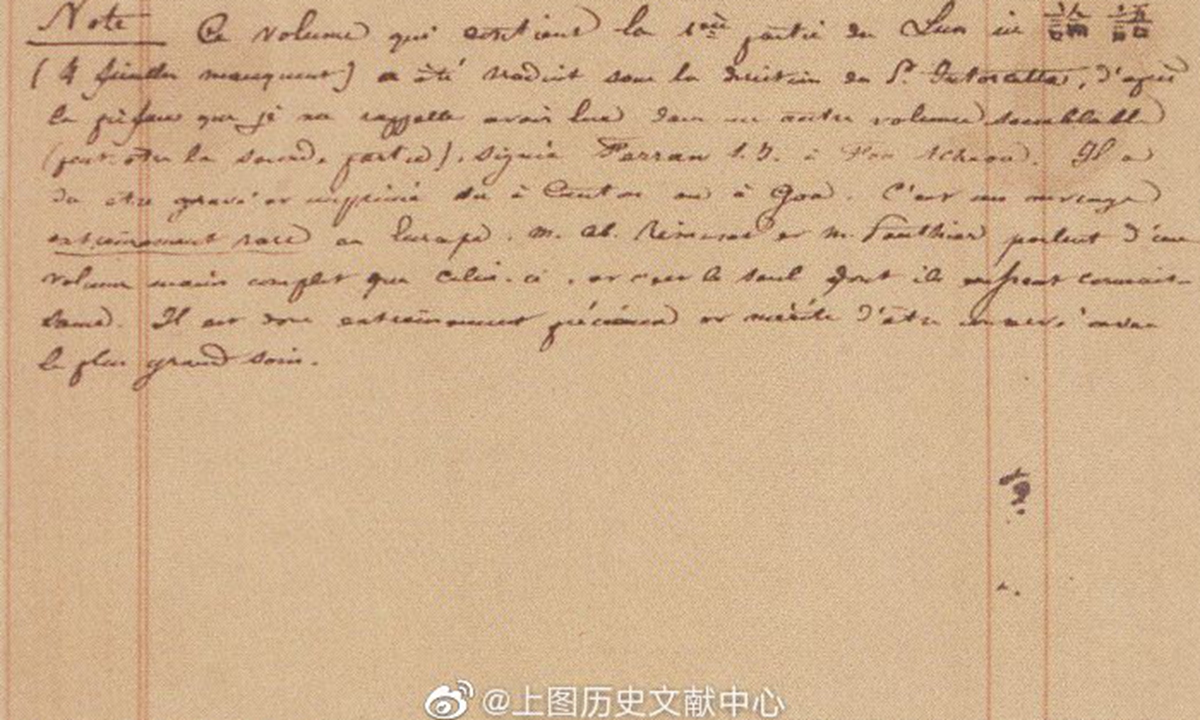 Note Ce volume qui contient la 1ère partie du Lun iu 論 語
(4 feuilles manquent) a été traduit sous la direction du P. Intorcetta, d'après
la préface que je me rappelle avoir lue dans un autre volume semblable
(peut-être la seconde partie), signée Ferran S.J. à
du être gravé et imprimé soit à Canton ou à Goa. C'est un ouvrage
extrêmement rare en Europe. M. Ab. Rémusat et M. Pauthier parlent d'un
volume moins complet que celui-ci, et c'est le seul dont ils eussent connais-
sance. Il est donc extrêmement précieux et mérite d'être conservé avec
le plus grand soin.
@上图历史文献中心